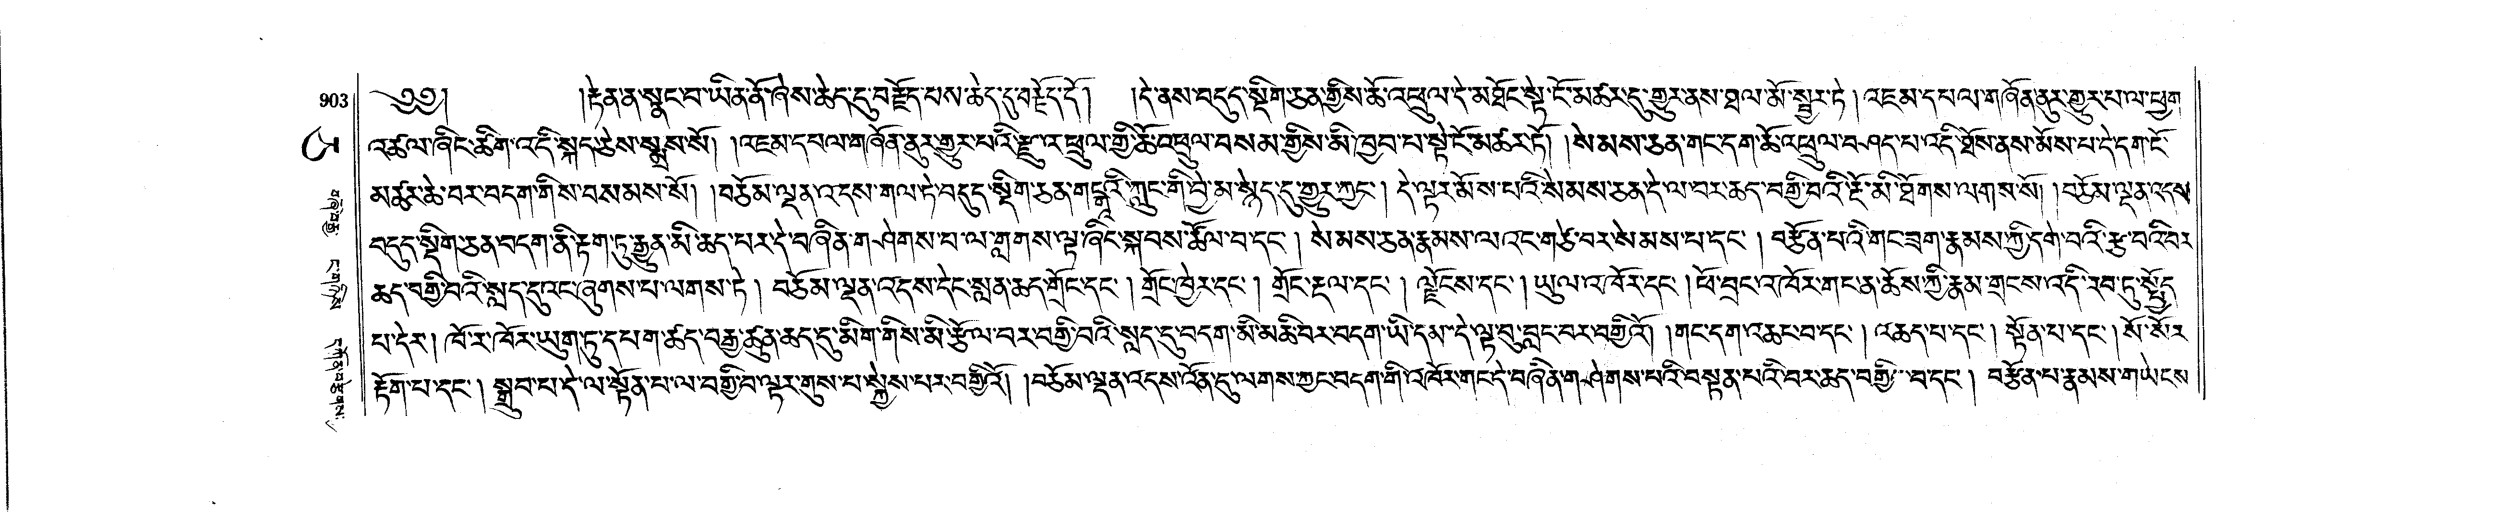 903
༄༅། །རྟེན་ན་སྣང་བ་ཡིན་ནོ་ཞེས་ཆེད་དུ་བརྗོད་པས་ཆེད་དུ་བརྗོད་དོ། །དེ་ནས་བདུད་སྡིག་ཅན་གྱིས་ཆོ་འཕྲུལ་དེ་མཐོང་སྟེ་ངོ་མཚར་དུ་གྱུར་ནས་ཐལ་མོ་སྦྱར་ཏེ། འཇམ་དཔལ་གཞོན་ནུར་གྱུར་པ་ལ་ཕྱག་
འཚལ་ཞིང་ཚིག་འདི་སྐད་ཅེས་སྨྲས་སོ། །འཇམ་དཔལ་གཞོན་ནུར་གྱུར་པའི་རྫུ་འཕྲུལ་གྱི་ཆོ་འཕྲུལ་བསམ་གྱིས་མི་ཁྱབ་པ་སྟེ་ངོ་མཚར་ཏོ། །སེམས་ཅན་གང་དག་ཆོ་འཕྲུལ་བཤད་པ་འདི་ཐོས་ནས་མོས་པ་དེ་དག་ངོ་
མཚར་ཆེ་བར་བདག་གིས་བསམས་སོ། །བཅོམ་ལྡན་འདས་གལ་ཏེ་བདུད་སྡིག་ཅན་གངྒཱའི་ཀླུང་གི་བྱེ་མ་སྙེད་དུ་གྱུར་ཀྱང་། དེ་ལྟར་མོས་པའི་སེམས་ཅན་དེ་ལ་བར་ཆད་བགྱི་བའི་ངོ་མི་ཐོགས་ལགས་སོ། །བཅོམ་ལྡན་འདས་
བདུད་སྡིག་ཅན་བདག་ནི་རྟག་ཏུ་རྒྱུན་མི་ཆད་པར་དེ་བཞིན་གཤེགས་པ་ལ་གླགས་ལྟ་ཞིང་སྐབས་ཚོལ་བ་དང་། སེམས་ཅན་རྣམས་ལ་འང་གཙེ་བར་སེམས་པ་དང་། བརྩོན་པའི་གང་ཟག་རྣམས་ཀྱི་དགེ་བའི་རྩ་བའི་བར་
ཆད་བགྱི་བའི་སླད་དུའང་ཞུགས་པ་ལགས་ཏེ། བཅོམ་ལྡན་འདས་དེང་སླན་ཆད་གྲོང་དང་། གྲོང་ཁྱེར་དང་། གྲོང་རྡལ་དང་། ལྗོངས་དང་། ཡུལ་འཁོར་དང་། ཕོ་བྲང་འཁོར་གང་ན་ཆོས་ཀྱི་རྣམ་གྲངས་འདི་རབ་ཏུ་སྤྱོད་
པ་དེར། ཁོ་ར་ཁོར་ཡུག་ཏུ་དཔག་ཚད་བརྒྱ་ཚུན་ཆད་དུ་མིག་གིས་མི་རྩོལ་བར་བགྱི་བའི་སླད་དུ་བདག་མི་མཆི་བར་བདག་ཡི་དམ་དེ་ལྟ་བུ་བླང་བར་བགྱིའོ། །གང་དག་འཆང་བ་དང་། འཆད་པ་དང་། སྟོན་པ་དང་། སོ་སོར་
རྟོག་པ་དང་། སྒྲུབ་པ་དེ་ལ་སྟོན་པ་ལ་བགྱི་བ་ལྟར་གུས་པ་སྐྱེས་པར་བགྱིའོ། །བཅོམ་ལྡན་འདས་འོན་དུ་ལགས་ཀྱང་བདག་གི་འཁོར་གང་དེ་བཞིན་གཤེགས་པའི་བསྟན་པའི་བར་ཆད་བགྱི་བ་དང་། བརྩོན་པ་རྣམས་གཡེངས་